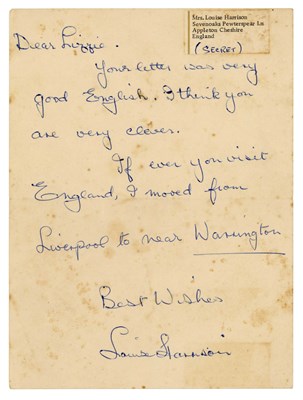 Mrs. Louise Harrison
Sevenoaks Pewterspear Ln
Appleton Cheshire
England
(SECRET)
Dear Lizzie.
Your letter was very
good English. I think you
are very clever.
If ever you visit
England, I moved from
Liverpool to near Warrington
Best Wishes
Louise Harrison